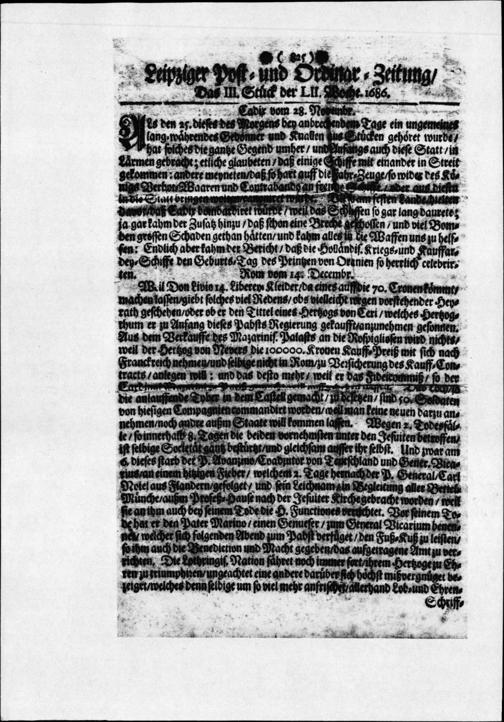 ( 825 )
Leipziger Post- und Ordinar-Zeitung/
Das III. Stück der LII. Woche. 1686.
Cadix vom 28. Novembr.
Als den 25. dieses des Morgens bey anbrechendem Tage ein ungemeines
lang-währendes Gedonner und Knallen aus Stücken gehöret wurde/
hat solches die gantze Gegend umher/ und Anfangs auch diese Statt/ in
Lärmen gebracht; etliche glaubeten/ daß einige Schiffe mit einander in Streit
gekommen: andere meyneten/ daß so hart auff die Fahr-Zeuge/ so wider des Kö-
nigs Verbot Waaren und Contrabanda an fremde Schiffe/ oder aus diesen
in die Statt bringen wollen/ canoniret würde. Die vom festen Lande hielten
davor/ daß Cadix bombardiret würde/ weil das Schiessen so gar lang daurete;
ja gar kahm der Zusatz hinzu/ daß schon eine Breche geschossen/ und viel Bom-
ben grossen Schaden gethan hätten/ und kahm alles in die Waffen uns zu helf-
fen: Endlich aber kahm der Bericht/ daß die Holländis. Kriegs- und Kauffar-
dey-Schiffe den Geburts-Tag des Printzen von Oranien so herrlich celebrir-
ten. Rom vom 14. Decembr.
Weil Don Livio 14. Liberey-Kleider/ da eines auff die 70. Cronen kömmt/
machen lassen/ giebt solches viel Redens/ obs vielleicht wegen vorstehender Hey-
rath geschehen/ oder ob er den Tittel eines Hertzogs von Ceri/ welches Hertzog-
thum er zu Anfang dieses Pabsts Regierung gekaufft/ anzunehmen gesonnen.
Aus dem Verkauffe des Mazarinis. Palasts an die Rospigliosen wird nichts/
weil der Hertzog von Nevers die 100000. Kronen Kauff-Preiß mit sich nach
Franckreich nehmen/ und selbige nicht in Rom/ zu Versicherung des Kauff-Con-
tracts/ anlegen will: und das desto mehr/ weil er das Fideicommiß/ so der
Cardinal
die anlauffende Tyber in dem Castell gemacht/ zu besetzen/ sind 50. Soldaten
von hiesigen Compagnien commandiret worden/ weil man keine neuen darzu an-
nehmen/ noch andre außm Staate will kommen lassen. Wegen 2. Todesfäl-
le/ so innerhalb 8. Tagen die beiden vornehmsten unter den Jesuiten betroffen/
ist selbige Societät gantz bestürtzt/ und gleichsam ausser ihr selbst. Und zwar am
6. dieses starb der P. Avanzino/ Coadjutor von Teutschland und Gener. Vica-
rius/ an einem hitzigen Fieber/ welchem 2. Tage hernach der P. General/ Carl
Noiel aus Flandern/ gefolget/ und sein Leichnam in Begleitung alles Bettel-
Münche/ außm Profeß-Hause nach der Jesuiter Kirche gebracht worden/ weil
sie an ihm auch bey seinem Tode die H. Functiones verrichtet. Vor seinem To-
de hat er den Pater Marino/ einen Genueser/ zum General Vicarium benen-
net/ welcher sich folgenden Abend zum Pabst verfüget/ den Fuß-Kuß zu leisten/
so ihm auch die Benediction und Macht gegeben/ das aufgetragene Amt zu ver-
richten. Die Lothringis. Nation fähret noch immer fort/ ihrem Hertzoge zu Eh-
ren zu triumphiren/ ungeachtet eine andere darüber sich höchst mißvergnüget be-
zeiget/ welches denn selbige um so viel mehr anfrischet/ allerhand Lob- und Ehren-
Schriff-